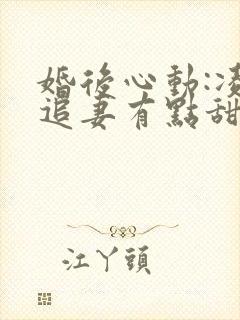 婚後心動:凌
追妻有點甜
江丫頭